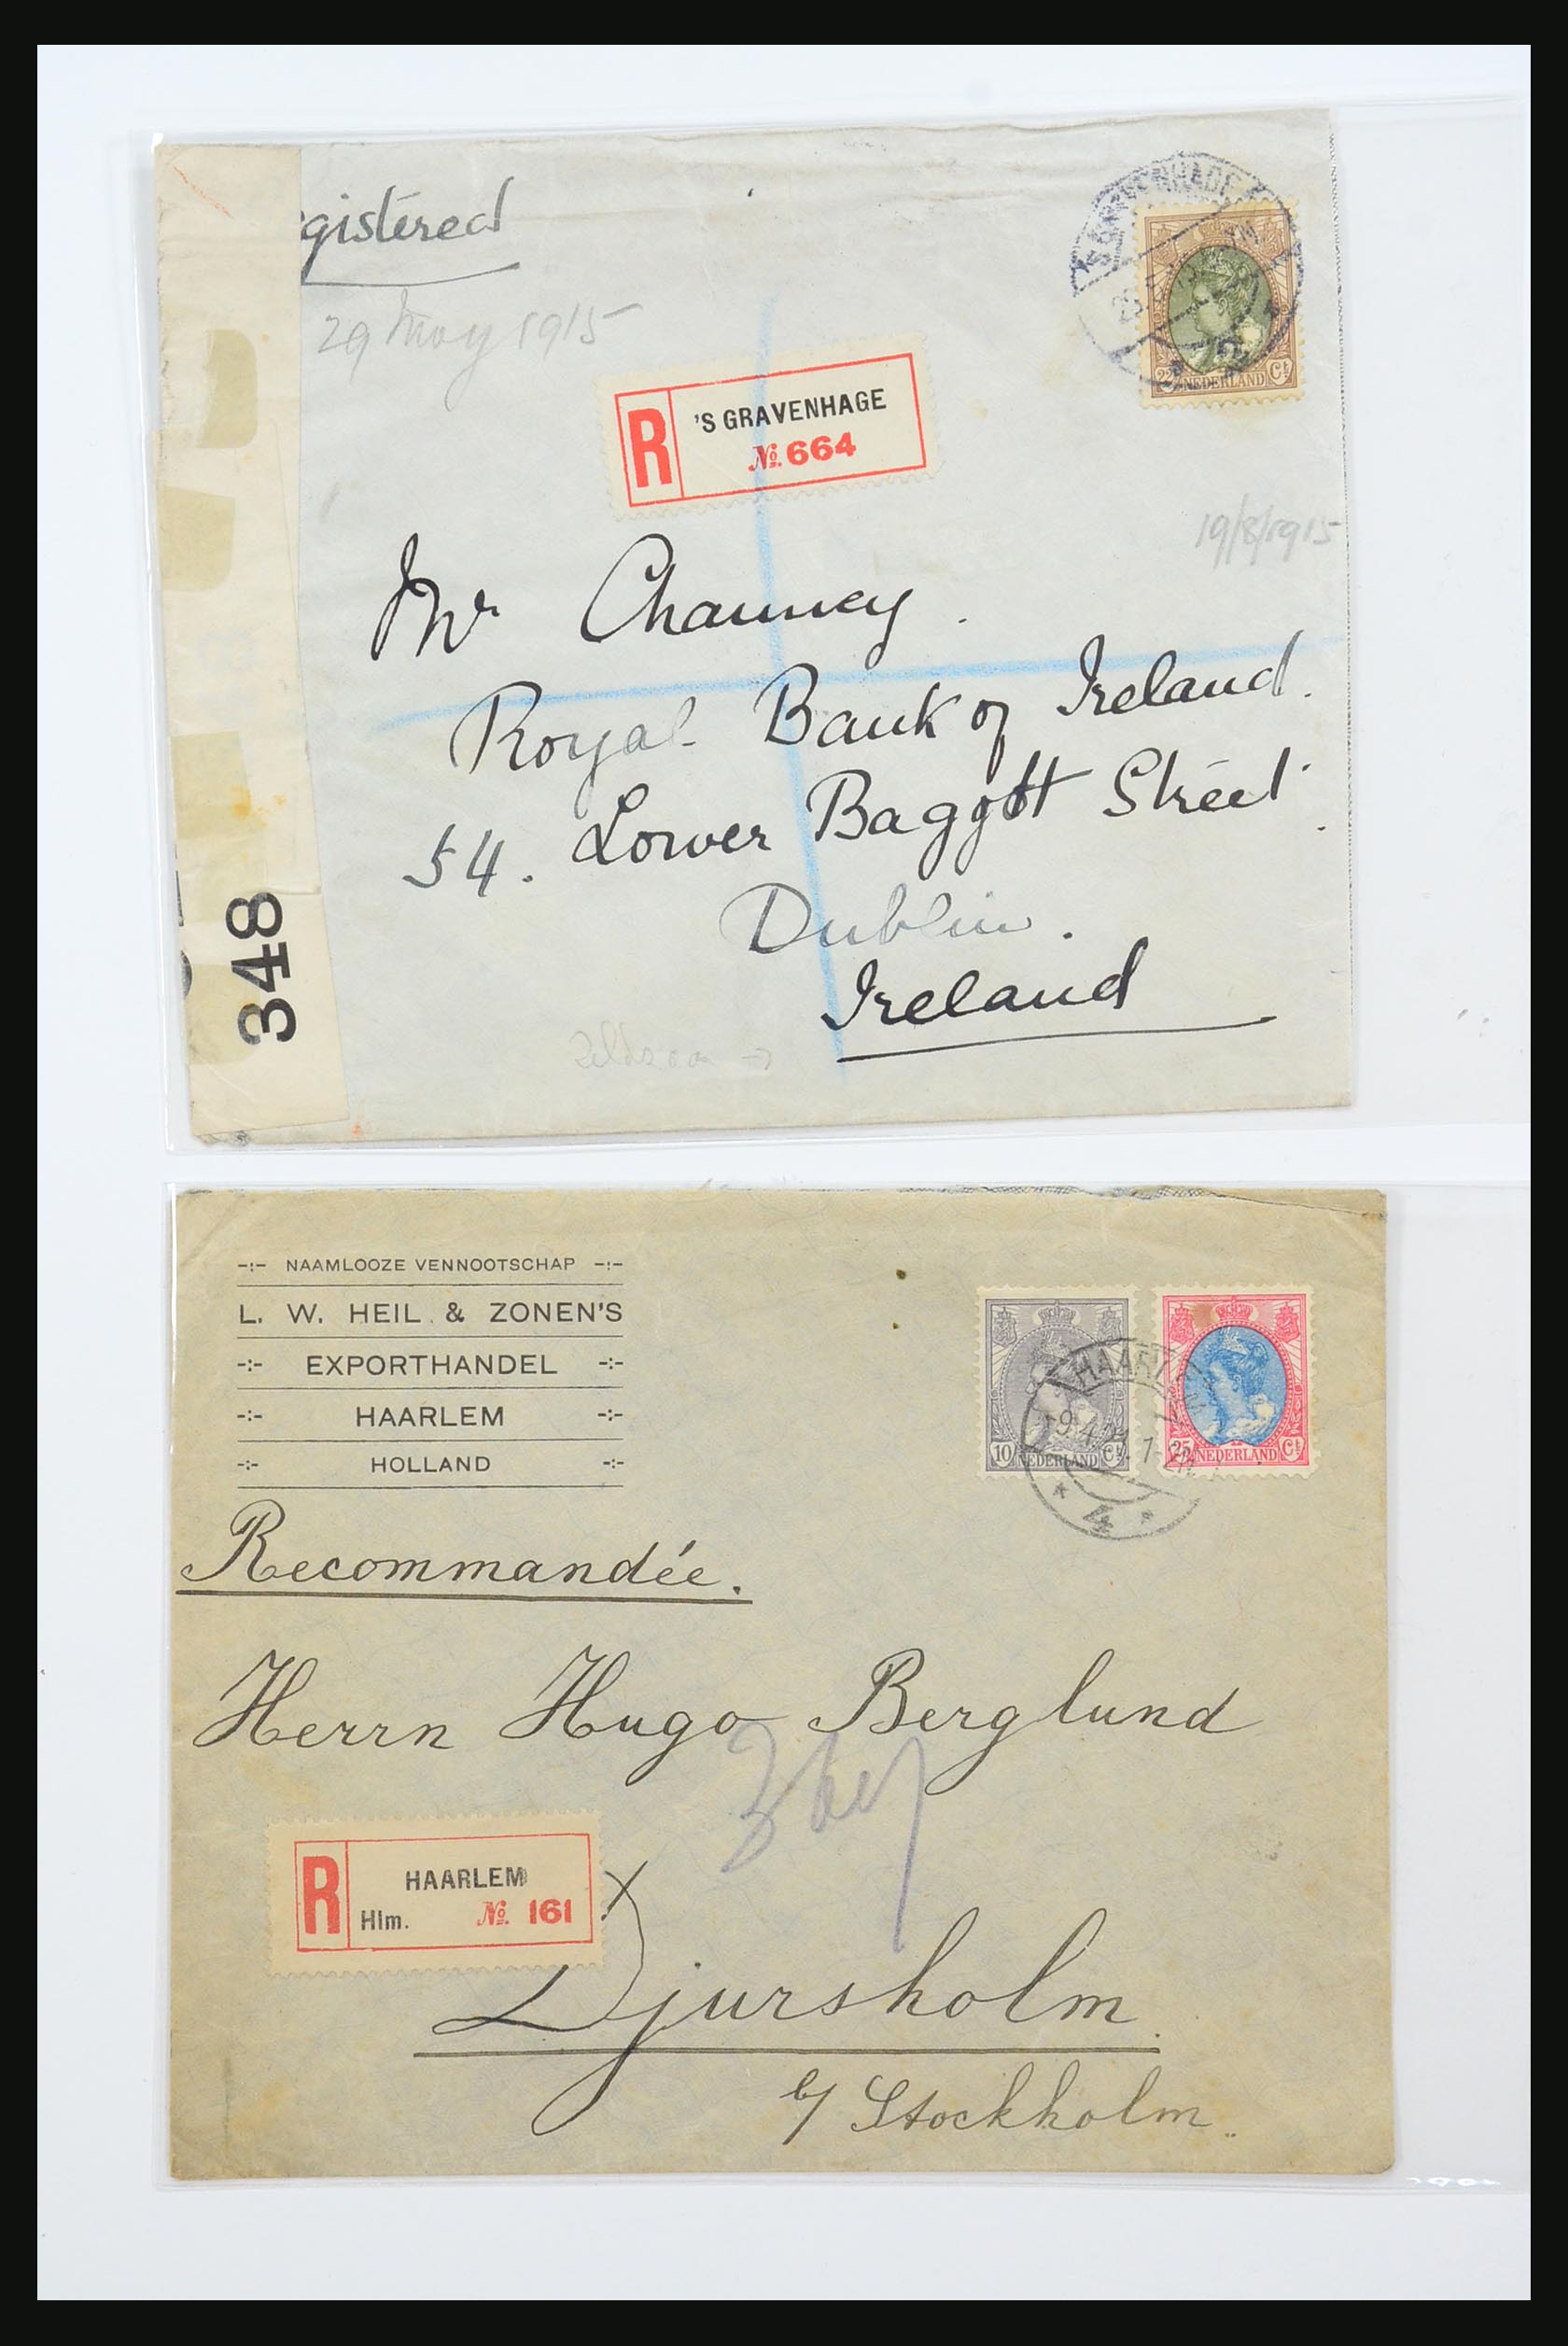 gistered
29 May 1915
'S GRAVENHAGE
22½ NEDERLAND Ct
R 'S GRAVENHAGE
№ 664
19/8/1915
Mr Chauncy.
Royal Bank of Ireland.
54. Lower Baggott Street.
Dublin.
Ireland
348
-:- NAAMLOOZE VENNOOTSCHAP -:-
L. W. HEIL & ZONEN'S
-:- EXPORTHANDEL -:-
-:- HAARLEM -:-
-:- HOLLAND -:-
10 NEDERLAND Ct
25 NEDERLAND Ct
HAARL
4
Recommandée.
Herrn Hugo Berglund
R HAARLEM
Hlm. № 161
Djursholm.
b/ Stockholm.